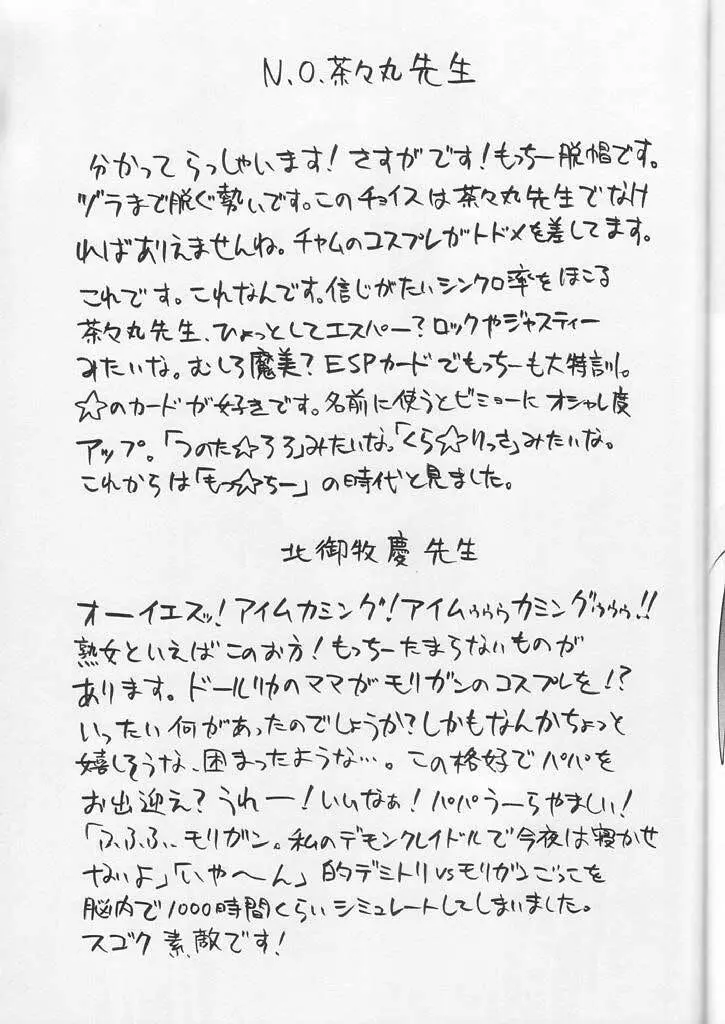 N.O.茶々丸先生
分かってらっしゃいます!さすがです!もっちー脱帽です。
ヅラまで脱ぐ勢いです。このチョイスは茶々丸先生でなけ
ればありえませんね。チャムのコスプレがトドメを差してます。
これです。これなんです。信じがたいシンクロ率をほこる
茶々丸先生、ひょっとしてエスパー?ロックやジャスティー
みたいな。むしろ魔美?ESPカードでもっちーも大特訓。
☆のカードが好きです。名前に使うとビミョーにオシャレ度
アップ。「つのた☆ろろ」みたいな。「くら☆りっさ」みたいな。
これからは「もっ☆ちー」の時代と見ました。
北御牧慶先生
オーイエズッ!アイムカミング!アイムゥゥゥカミングゥゥゥ!!
熟女といえばこのお方!もっちーたまらないものが
あります。ドールリカのママがモリガンのコスプレを!?
いったい何があったのでしょうか?しかもなんかちょっと
嬉しそうな、困まったような…。この格好でパパを
お出迎え?うれー!いいなぁ!パパうーらやましい!
「ふふふ…モリガン。私のデモンクレイドルで今夜は寝かせ
ないよ」「いやーん」的デミトリvsモリガンごっこを
脳内で1000時間くらいシミュレートしてしまいました。
スゴク素敵です!